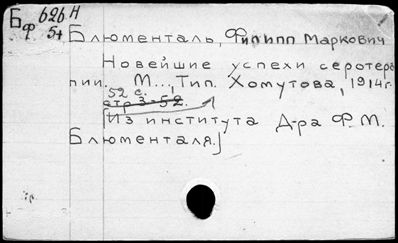 Б 626 Н
ф 54
Блюменталь, Филипп Маркович
Новейшие успехи серотера
пии. М.., Тип. Хомутова, 1914г.
52 с.
стр 3-52.
[Из института Д-ра Ф.М.
Блюменталя.]